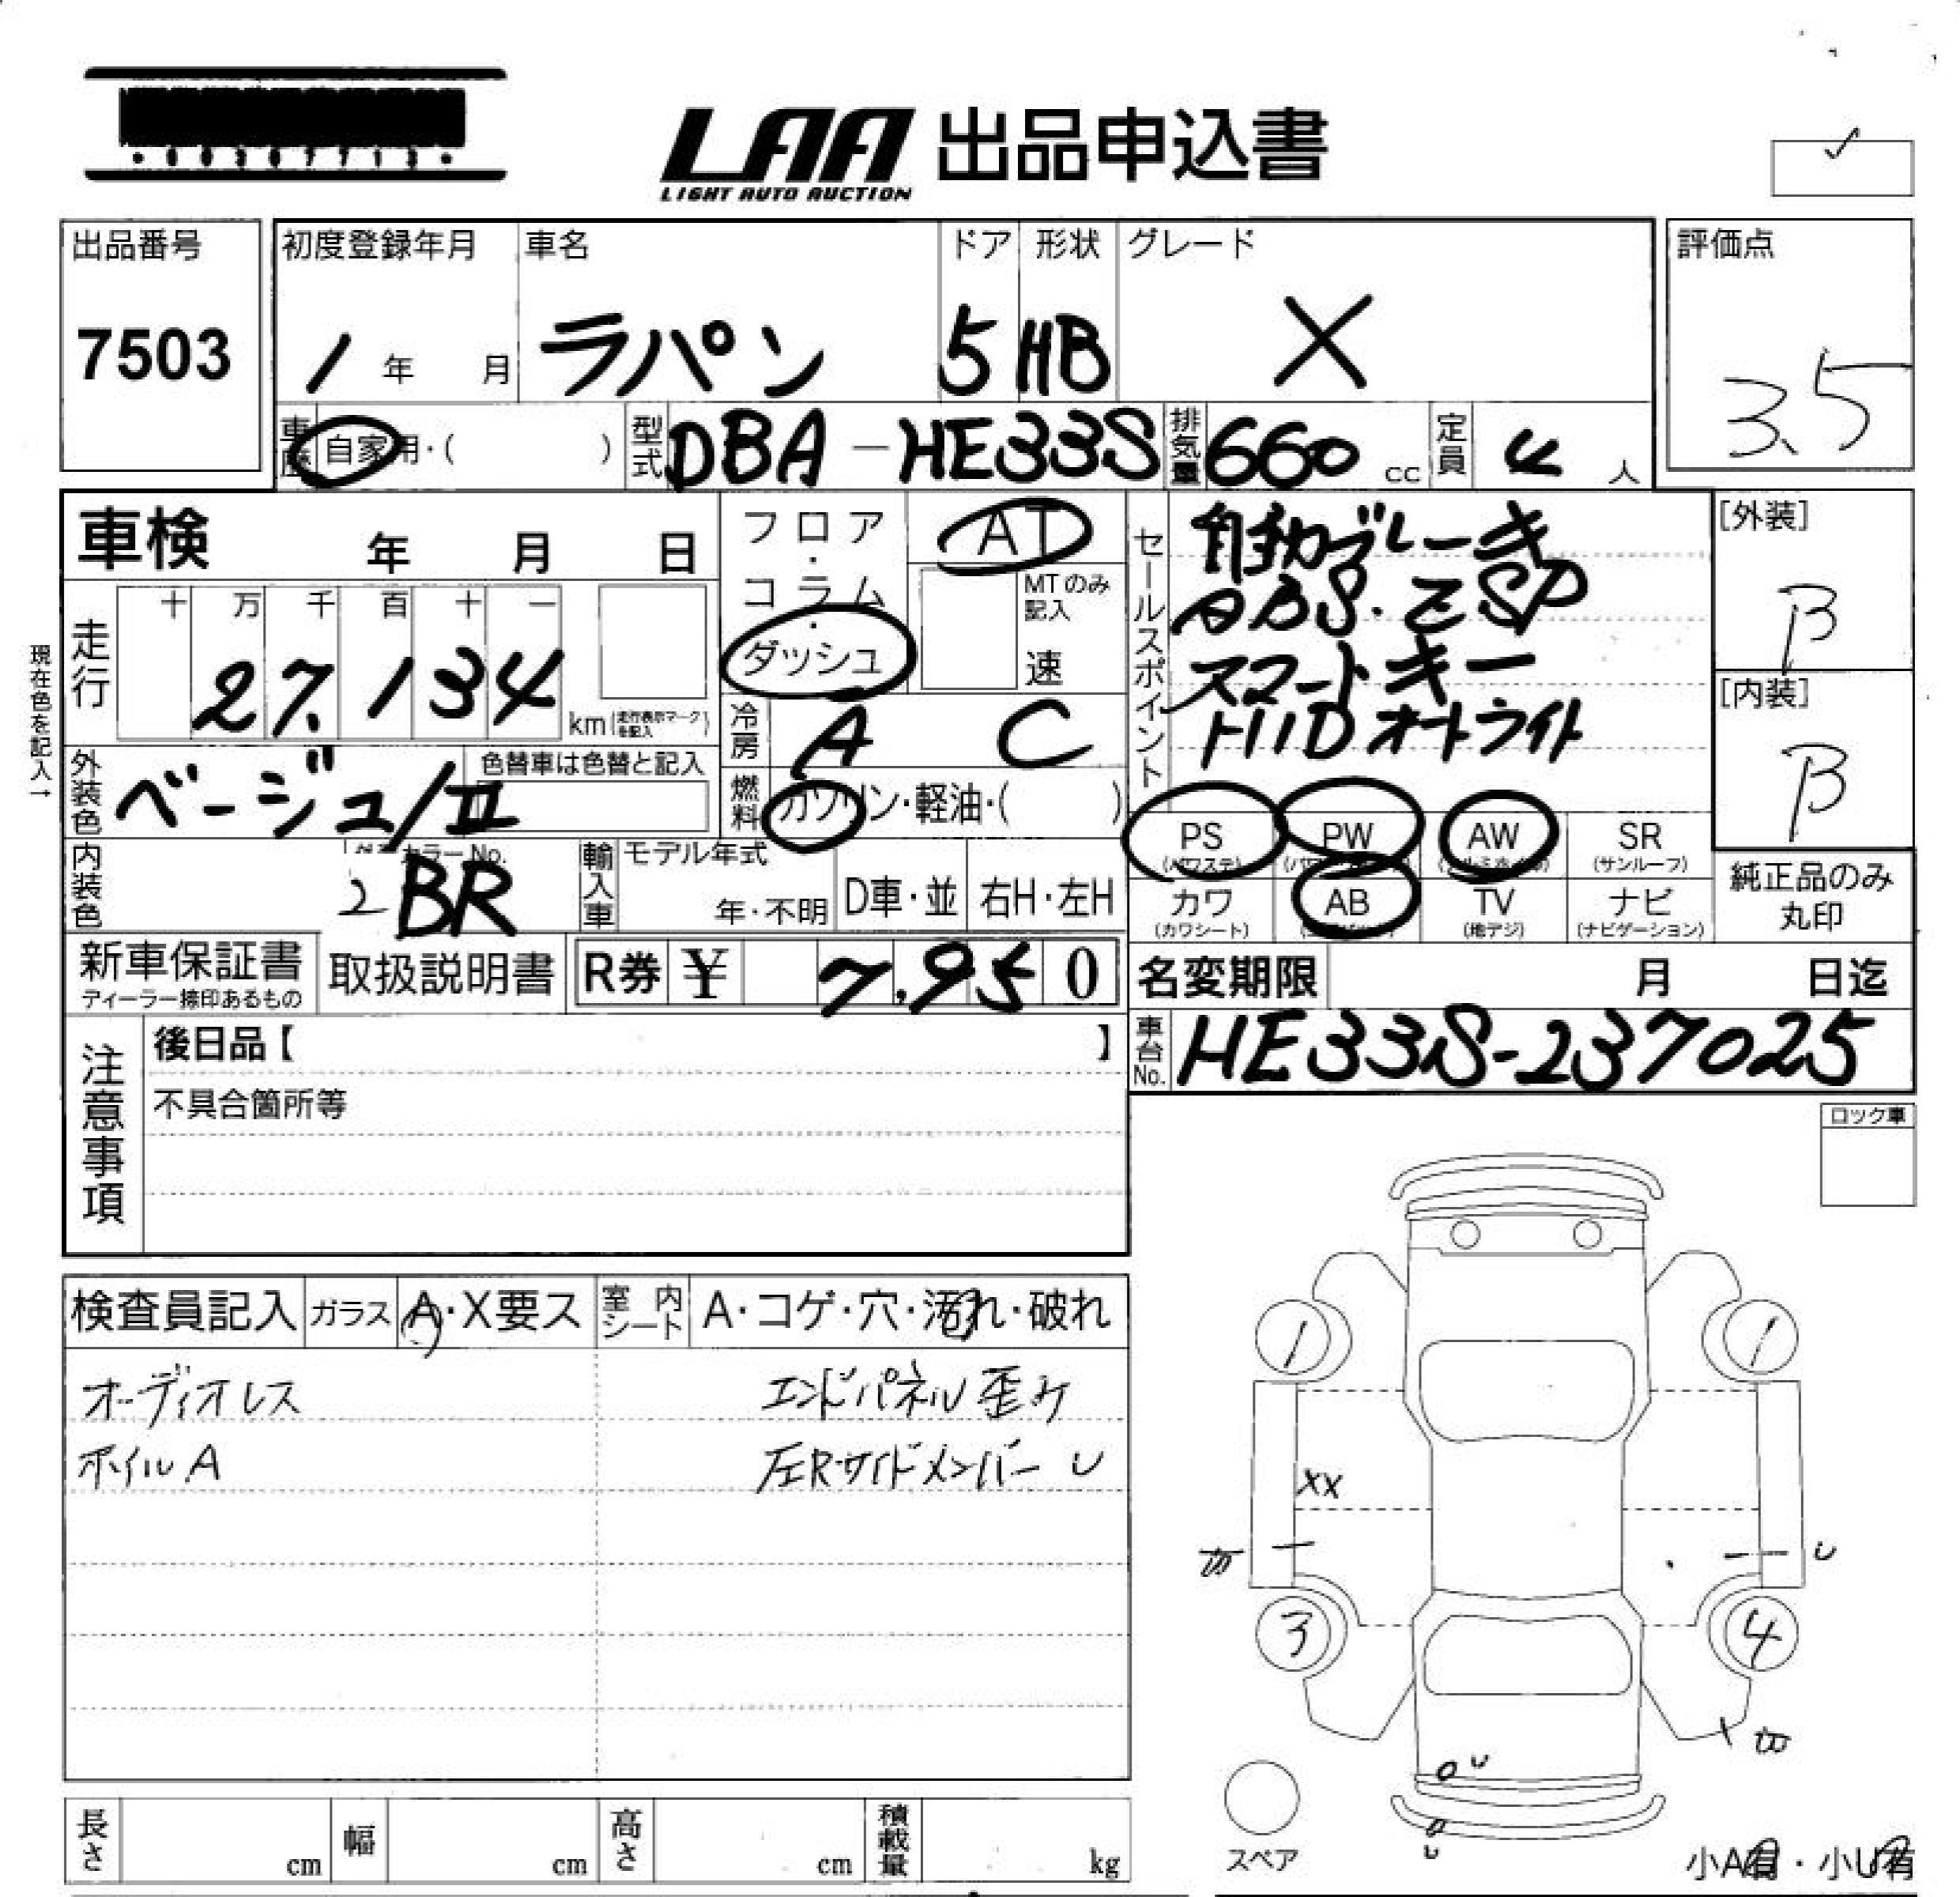 ・00307713・
LAA 出品申込書
LIGHT AUTO AUCTION
出品番号
7503
初度登録年月
1年 月
車名
ラパン
ドア
5
形状
HB
グレード
X
評価点
3.5
車歴 自家用・( )
型式 DBA-HE33S
排気量 660 cc
定員 4 人
車検 年 月 日
フロア・コラム・ダッシュ
AT
MTのみ記入
速
セールスポイント
自動ブレーキ
ABS. ESP
スマートキー
HID オートライト
[外装]
B
[内装]
B
現在色を記入→
走行
十 万 千 百 十 一
27,134
km(走行表示マークを記入)
冷房 A C
外装色 ベージュ/II
色替車は色替と記入
燃料 ガソリン・軽油・( )
PS (パワステ)
PW
AW
SR (サンルーフ)
カワ (カワシート)
AB
TV (地デジ)
ナビ (ナビゲーション)
純正品のみ
丸印
内装色 BR
カラーNo.
2
輸入車
モデル年式
年・不明
D車・並
右H・左H
新車保証書
ディーラー捺印あるもの
取扱説明書
R券 ¥ 7,950
名変期限 月 日迄
車台No. HE33S-237025
注意事項
後日品【 】
不具合箇所等
ロック車
検査員記入
ガラス A・X要ス
室内シート A・コゲ・穴・汚れ・破れ
オーディオレス
エンドパネル歪み
ホイルA
左Rサイドメンバー U
1
1
XX
U
3
4
U
U
スペア
小A有・小U有
長さ cm
幅 cm
高さ cm
積載量 kg